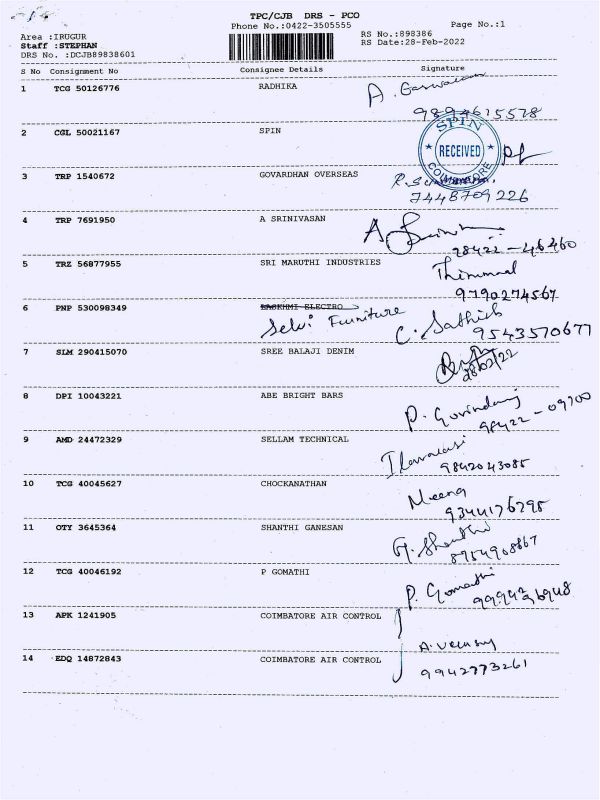 TPC/CJB DRS - PCO
Phone No.:0422-3505555 Page No.:1
Area :IRUGUR RS No.:898386
Staff :STEPHAN RS Date:28-Feb-2022
DRS No. :DCJB89838601
S No Consignment No Consignee Details Signature
1 TCG 50126776 RADHIKA A.
2 CGL 50021167 SPIN
SPIN
RECEIVED
COIMBATORE
3 TRP 1540672 GOVARDHAN OVERSEAS
7448709226
4 TRP 7691950 A SRINIVASAN A
98422-46460
5 TRZ 56877955 SRI MARUTHI INDUSTRIES
9790274567
6 PNP 530098349 LASKHMI ELECTRO
Selvi Furniture C. Sathish
9543570677
7 SLM 290415070 SREE BALAJI DENIM
28/02/22
8 DPI 10043221 ABE BRIGHT BARS P. Govindaraj
98422-09700
9 AMD 24472329 SELLAM TECHNICAL Ilavarasi
9842043085
10 TCG 40045627 CHOCKANATHAN Meena
9344176795
11 OTY 3645364 SHANTHI GANESAN G. Shanthi
8954908867
12 TCG 40046192 P GOMATHI P. Gomathi
13 APK 1241905 COIMBATORE AIR CONTROL
14 EDQ 14872843 COIMBATORE AIR CONTROL A.
9942773261